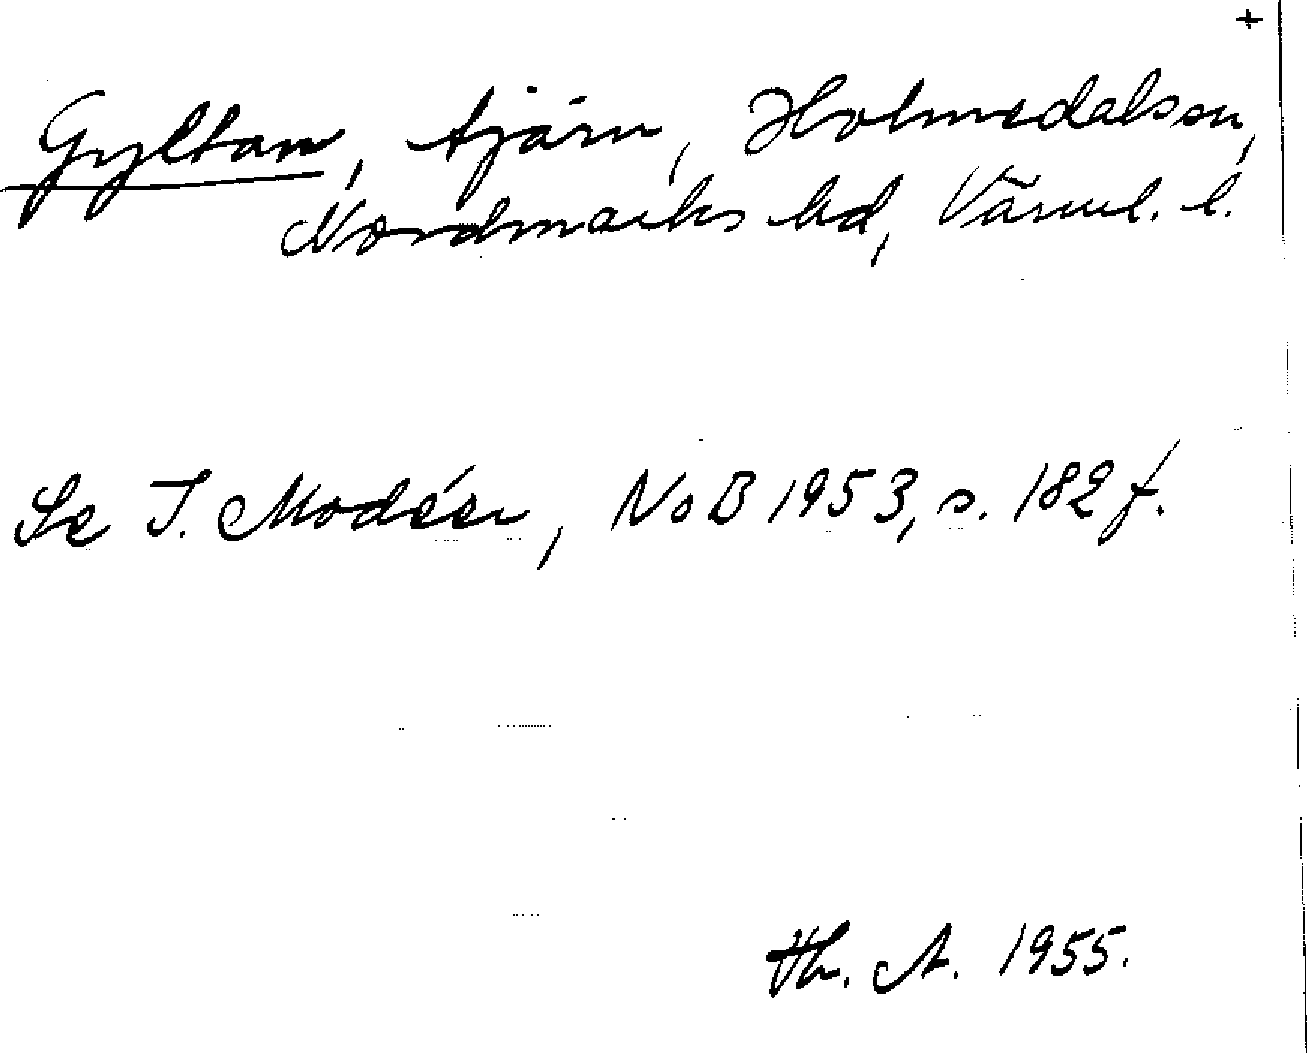 +
Gyltan, tjärn, Holmedals sn,
Nordmarks hd, Värml. l.
Se I. Modéer, NoB 1953, s. 182 f.
Th. A. 1955.